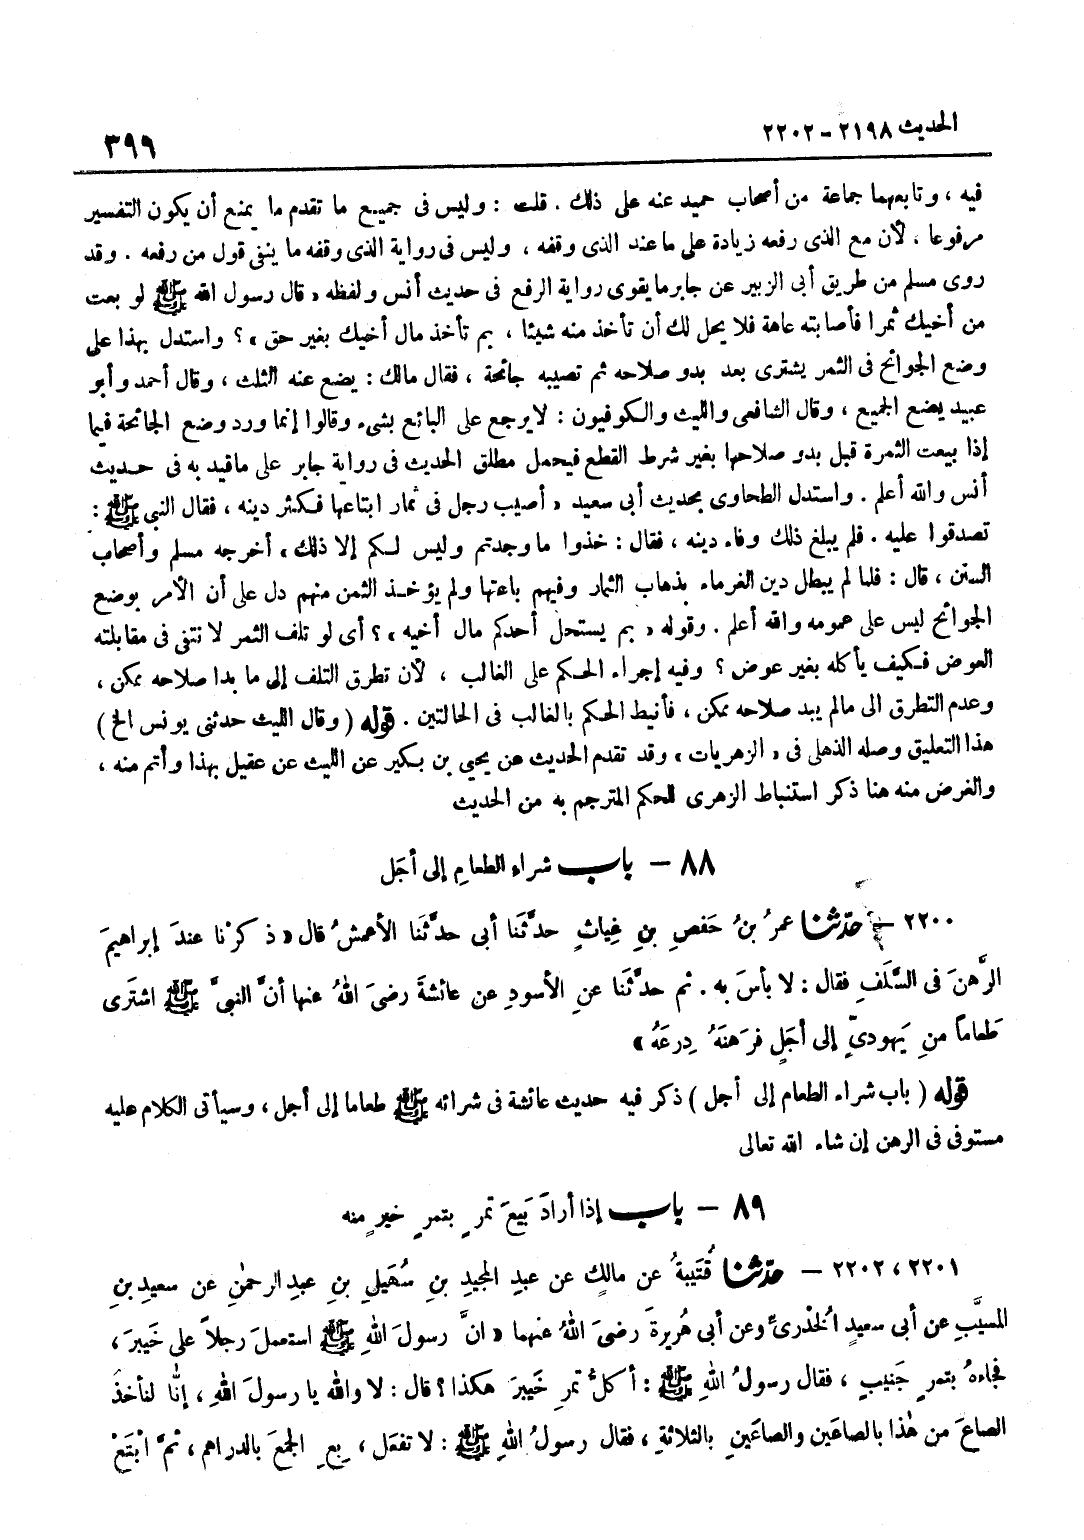 الحديث ٢١٩٨ - ٢٢٠٢
٣٩٩
فيه ، وتابعهما جماعة من أصحاب حميد عنه على ذلك . قلت : وليس فى جميع ما تقدم ما يمنع أن يكون التفسير
مرفوعا ، لأن مع الذى رفعه زيادة على ما عند الذى وقفه ، وليس فى رواية الذى وقفه ما ينفى قول من رفعه . وقد
روى مسلم من طريق أبى الزبير عن جابر ما يقوى رواية الرفع فى حديث أنس ولفظه « قال رسول الله ﷺ لو بعت
من أخيك ثمرا فأصابته عاهة فلا يحل لك أن تأخذ منه شيئا ، بم تأخذ مال أخيك بغير حق » ؟ واستدل بهذا على
وضع الجوائح فى الثمر يشترى بعد بدو صلاحه ثم تصيبه جائحة ، فقال مالك : يضع عنه الثلث ، وقال أحمد وأبو
عبيد يضع الجميع ، وقال الشافعى والليث والكوفيون : لا يرجع على البائع بشىء وقالوا إنما ورد وضع الجائحة فيما
إذا بيعت الثمرة قبل بدو صلاحها بغير شرط القطع فيحمل مطلق الحديث فى رواية جابر على ما قيد به فى حديث
أنس والله أعلم . واستدل الطحاوى بحديث أبى سعيد « أصيب رجل فى ثمار ابتاعها فكثر دينه ، فقال النبى ﷺ :
تصدقوا عليه . فلم يبلغ ذلك وفاء دينه ، فقال : خذوا ما وجدتم وليس لكم إلا ذلك » أخرجه مسلم وأصحاب
السنن ، قال : فلما لم يبطل دين الغرماء بذهاب الثمار وفيهم باعتها ولم يؤخذ الثمن منهم دل على أن الأمر بوضع
الجوائح ليس على عمومه والله أعلم . وقوله « بم يستحل أحدكم مال أخيه » ؟ أى لو تلف الثمر لا نتفى فى مقابلته
العوض فكيف يأكله بغير عوض ؟ وفيه إجراء الحكم على الغالب ، لأن تطرق التلف إلى ما بدا صلاحه ممكن ،
وعدم التطرق الى مالم يبد صلاحه ممكن ، فأنيط الحكم بالغالب فى الحالتين . قوله ( وقال الليث حدثنى يونس الخ )
هذا التعليق وصله الذهلى فى « الزهريات » وقد تقدم الحديث عن يحيى بن بكير عن الليث عن عقيل بهذا وأتم منه ،
والغرض منه هنا ذكر استنباط الزهرى للحكم المترجم به من الحديث
٨٨ - باب شراء الطعامِ إلى أجَل
٢٢٠٠ - حدّثنا عمرُ بنُ حَفصِ بنِ غِياثٍ حدَّثَنا أبى حدَّثَنا الأعمشُ قال « ذكرْنا عندَ إبراهيمَ
الرَّهنَ فى السَّلَفِ فقال : لا بأسَ به . ثم حدَّثَنا عنِ الأسودِ عن عائشةَ رضىَ اللهُ عنها أنَّ النبىَّ ﷺ اشتَرى
طَعاماً منِ يَهودىٍّ إلى أجَلٍ فرَهنَهُ دِرعَهُ »
قوله ( باب شراء الطعام إلى أجل ) ذكر فيه حديث عائشة فى شرائه ﷺ طعاما إلى أجل ، وسيأتى الكلام عليه
مستوفى فى الرهن إن شاء الله تعالى
٨٩ - باب إذا أرادَ بَيعَ تمرٍ بتمرٍ خيرٍ منه
٢٢٠١ ، ٢٢٠٢ - حدّثنا قُتَيبةُ عن مالكٍ عن عبدِ المجيدِ بنِ سُهَيلِ بنِ عبدِ الرحمٰنِ عن سعيدِ بنِ
المسيَّبِ عن أبى سعيدٍ الخُدْرىِّ وعن أبى هُريرةَ رضىَ اللهُ عنهما « انَّ رسولَ اللهِ ﷺ استعملَ رجلاً على خَيبرَ ،
فجاءهُ بتمرٍ جَنيبٍ ، فقال رسولُ اللهِ ﷺ : أكلُّ تمرِ خَيبرَ هكذا ؟ قال : لا والله يا رسولَ اللهِ ، إنَّا لنأخذُ
الصاعَ من هٰذا بالصاعَينِ والصاعَينِ بالثلاثةِ ، فقال رسولُ اللهِ ﷺ : لا تفعَل ، بِعِ الجمعَ بالدراهم ، ثمَّ ابْتَعْ